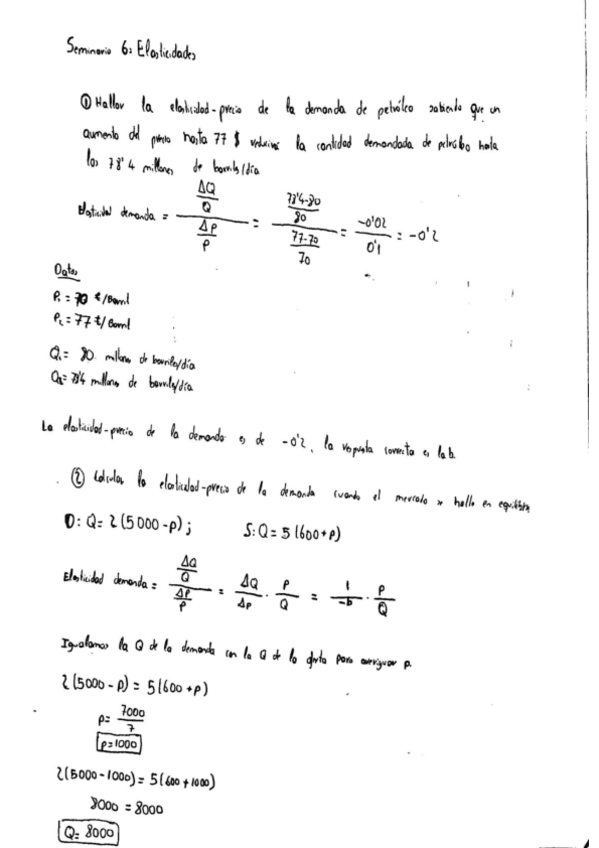 Seminario 6: Elasticidades
① Hallar la elasticidad-precio de la demanda de petróleo sabiendo que un
aumento del precio hasta 77 $ la cantidad demandada de petróleo hasta
los 78'4 millones de barriles/día
Elasticidad demanda = (ΔQ/Q)/(Δp/p) = ((78'4-80)/80)/((77-70)/70) = -0'02/0'1 = -0'2
Datos
P₁ = 70 $/Barril
P₂ = 77 $/Barril
Q₁ = 80 millones de barriles/día
Q₂ = 78'4 millones de barriles/día
La elasticidad-precio de la demanda es de -0'2, la respuesta correcta es la b.
② Calcular la elasticidad-precio de la demanda cuando el mercado se halla en equilibrio
D: Q = 2(5000-p); S: Q = 5(600+p)
Elasticidad demanda = (ΔQ/Q)/(Δp/p) = ΔQ/Δp · p/Q = 1/-b · p/Q
Igualamos la Q de la demanda con la Q de la oferta para averiguar p.
2(5000-p) = 5(600+p)
p = 7000/7
p=1000
2(5000-1000) = 5(600+1000)
8000 = 8000
Q = 8000